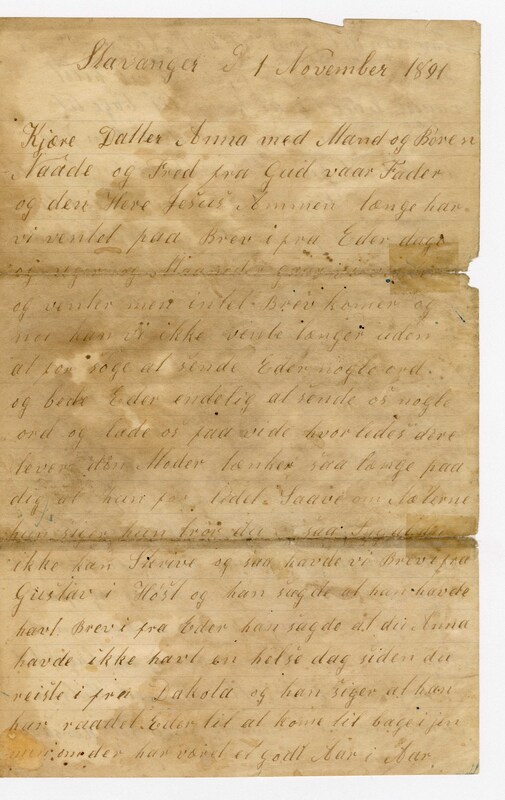 Stavanger d 1 November 1891
Kjære Datter Anna med Mand og Børen
Naade og Fred fra Gud vaar Fader
og den Here Jesus Ammen længe har
vi ventet paa Brev i fra Eder dage
og og Maaneder
og venter men intet Brev komer og
noe kan vi ikke vente længer uden
at for søge at sende Eder nogle ord
og bede Eder endelig at sende os nogle
ord og lade os faa vide hvorledes dere
lever din Moder tænker saa længe paa
dig at hun for lidet Saave om Nætterne
hun siger hun tror du saa
ikke kan Skrive og saa havde vi Brev i fra
Gustav i Høst og han sagde at han havde
havt Brev i fra Eder han sagde at du Anna
havde ikke havt en helse dag siden du
reiste i fra Dakota og han siger at han
har raadet Eder til at kome til bage i jen
der har værd et godt Aar i Aar